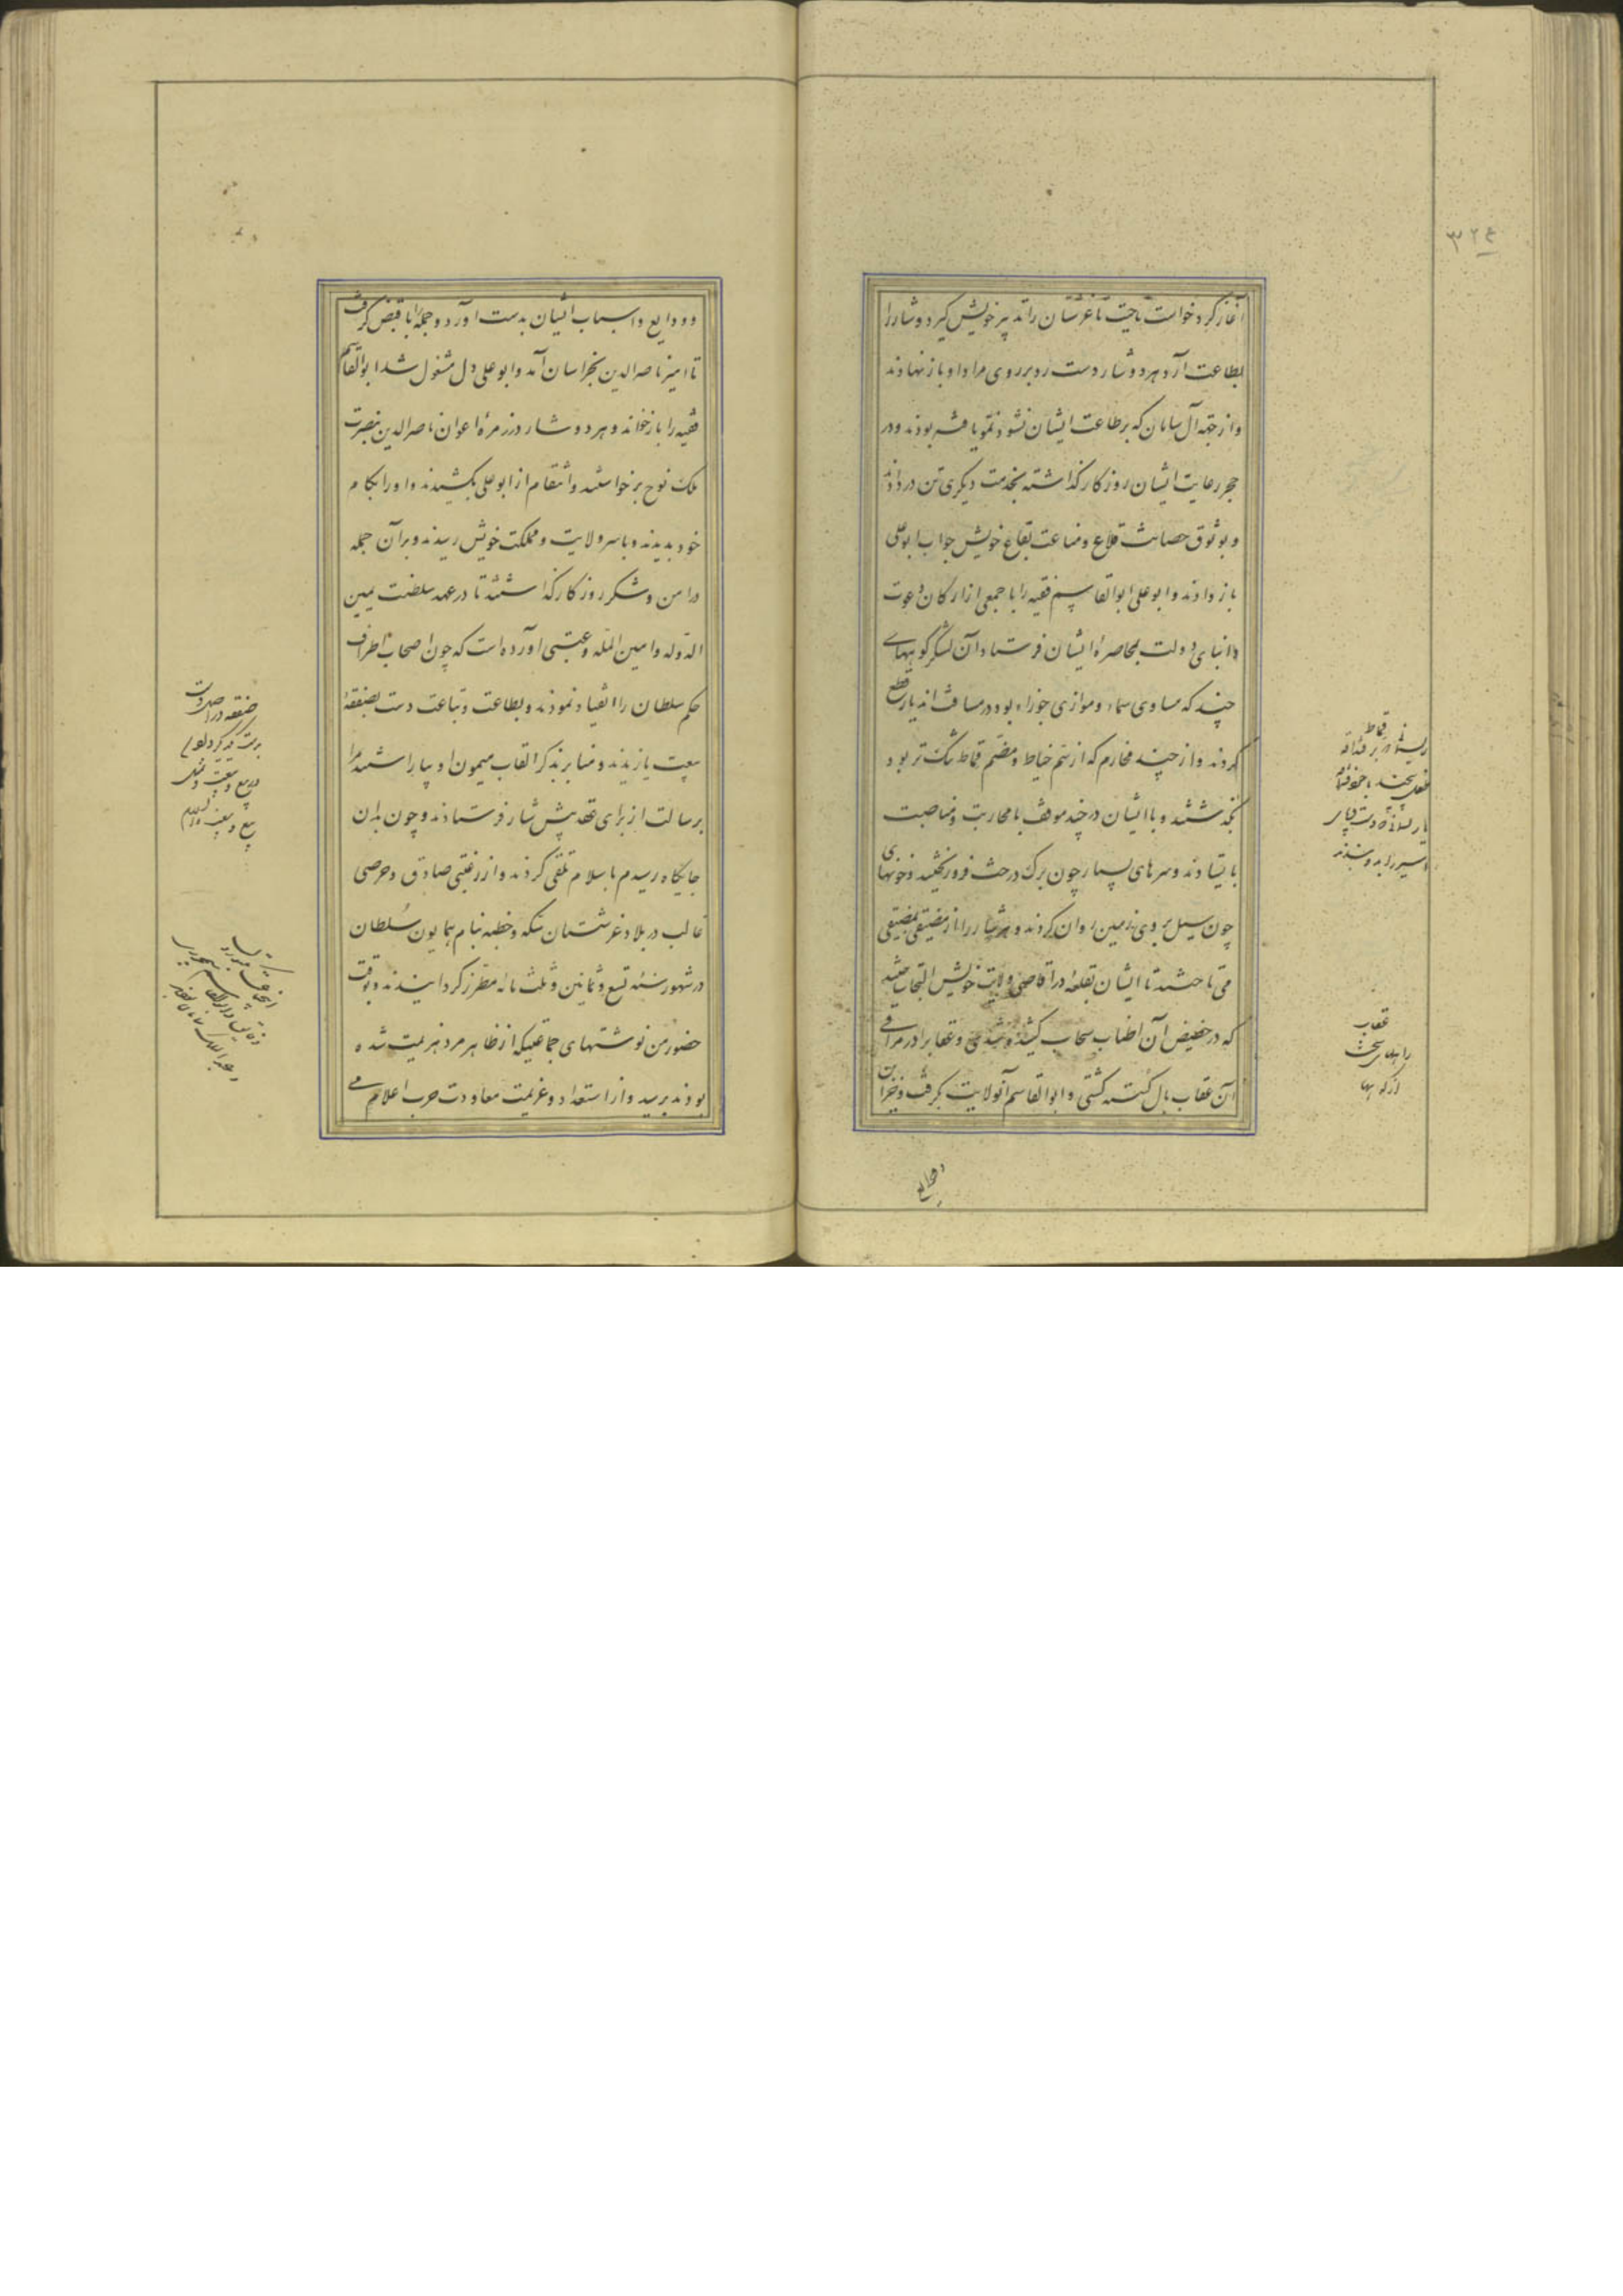 ۳۲۴
آغاز کرد خواست ناحیت غرشستان را تدبیر خویش گیرد و شار را
بطاعت آرد هر دو شار دست رد بر روی مراد او باز نهادند
و از جمله آل سامان که بر طاعت ایشان نشو و نمو یافته بودند و در
حجر رعایت ایشان روزگار گذاشته بخدمت دیگری تن در دادند
و بوثوق حصانت قلاع و مناعت بقاع خویش جواب ابوعلی
باز دادند و ابوعلی ابوالقاسم فقیه را با جمعی از ارکان دعوت
و انبای دولت بمحاصرهٔ ایشان فرستاد آن لشکر کوههای
چند که مساوی سماء و موازی جوزاء بود در مسافت اندیار قطع
کردند و از چند مخارم که از سم خیاط و مضم قماط تنک تر بود
بگذشتند و با ایشان در چند موقف با محاربت و مناصبت
بایستادند و سرهای بسیار چون برک درخت فرو ریختند و خونهای
چون سیل بر روی زمین روان کردند و هر دو شار را از مضیقی بمضیقی
می تاختند تا ایشان بقلعه در اقاصی ولایت خویش التجا ساختند
که در حضیض آن اطناب سحاب کشیده شدی و عقاب را در مراقی
آن عقاب بال شکسته گشتی و ابوالقاسم آنولایت بگرفت و خزاین
و ودایع
قماط
عقاب
و ودایع و اسباب ایشان بدست آورد و جمله را با قبض گرفت
تا امیر ناصر الدین بخراسان آمد و ابوعلی دل مشغول شد ابوالقاسم
فقیه را باز خواند و هر دو شار در زمرهٔ اعوان ناصر الدین بنصرت
ملک نوح برخواستند و انتقام از ابوعلی بکشیدند و او را بکام
خود بدیدند و با سر ولایت و مملکت خویش رسیدند و بر آن جمله
در امن و شکر روزگار گذاشتند تا در عهد سلطنت یمین
الدوله و امین المله و عتبی آورده است که چون اصحاب اطراف
حکم سلطان را انقیاد نمودند و بطاعت و تباعت دست بصفقهٔ
بیعت یازیدند و منابر بذکر القاب میمون او بیاراستند مرا
برسالت از برای عهد پیش شار فرستادند و چون بدان
جایگاه رسیدم باسلام تلقی کردند و از رغبتی صادق و حرصی
غالب در بلاد غرشستان سکه و خطبه بنام همایون سلطان
در شهور سنه تسع و ثمانین و ثلث مائه مطرز گردانیدند و بوقت
حضور من نوشتهای جماعتیکه از ظاهر مرو هزیمت شده
بودند برسید و از استعداد و عزیمت معاودت حرب اعلام می